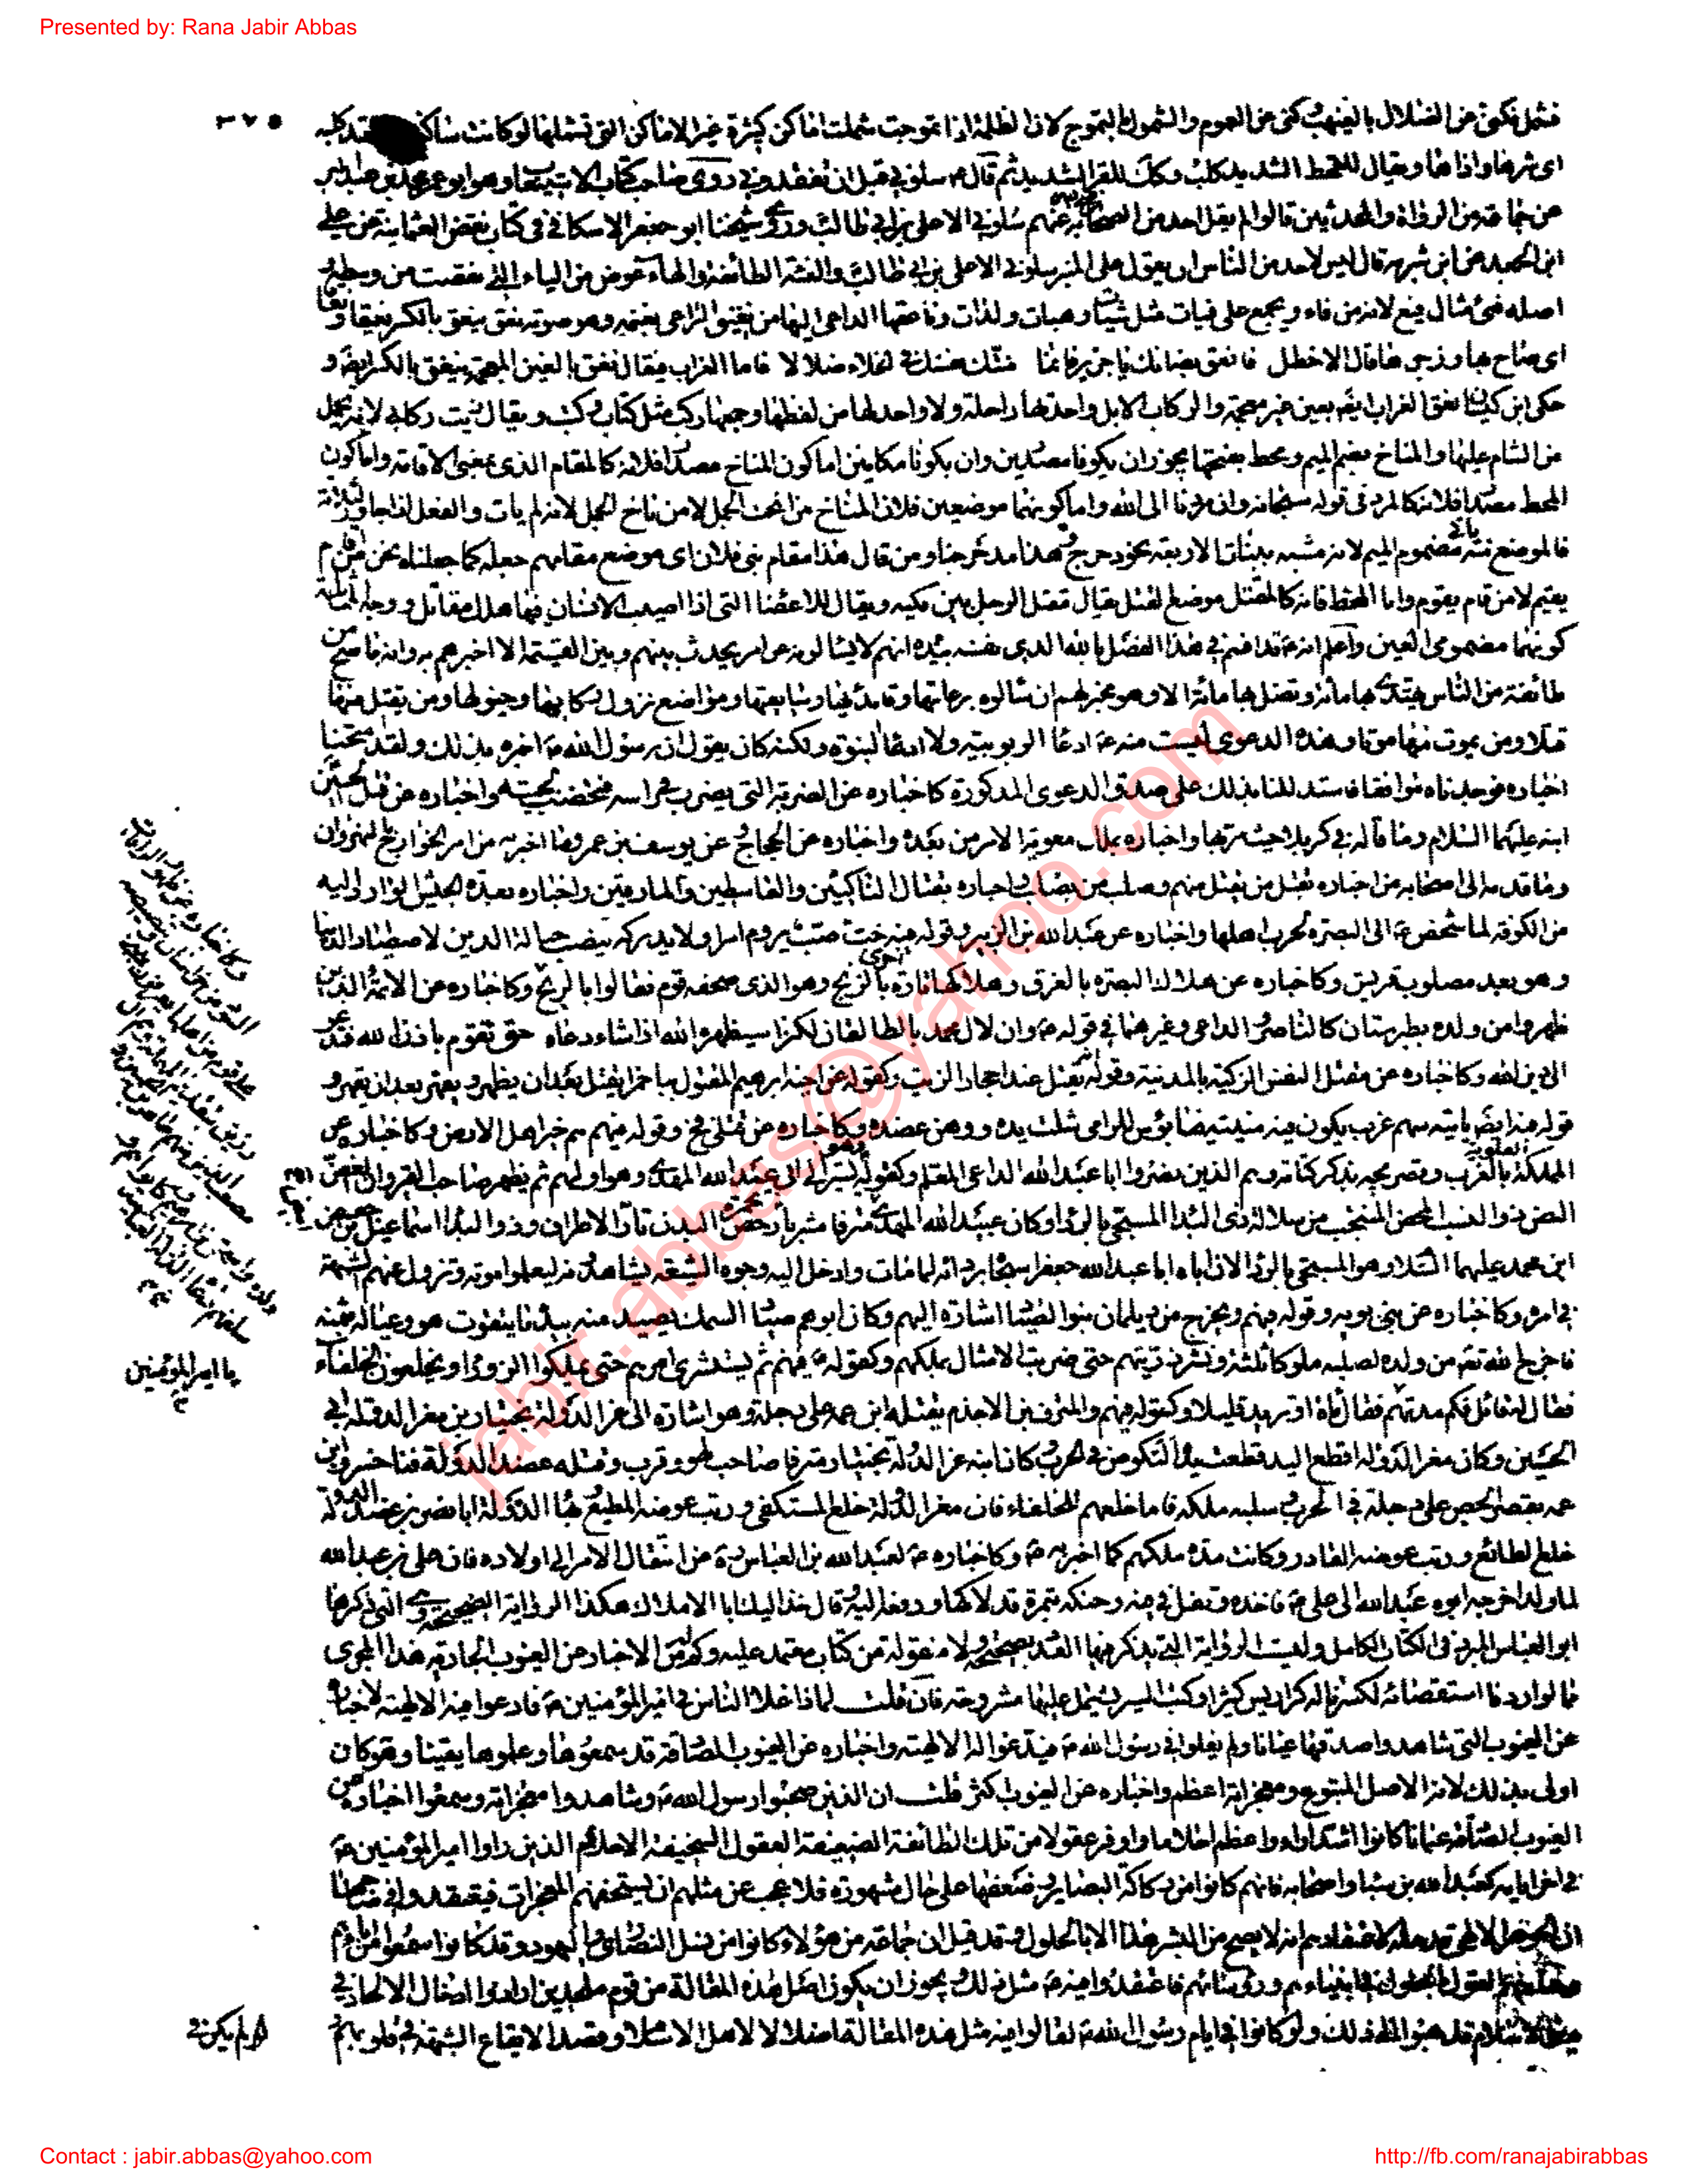 Presented by: Rana Jabir Abbas
٣٧٥
فمثل فكنى عن الضلال بالغيهب كنى عن العموم والشمول بالتموج لان الظلمة اذا تموجت شملت اماكن كثيرة غير الاماكن التى تشملها لو كانت ساكنة
اى شرها واذاها ويقال للقحط الشديد كلب وكذلك للقر الشديد ثم قال ع سلونى قبل ان تفقدونى روى صاحب كتاب الاستيعاب وهو ابو عمر محمد بن عبد البر
عن جماعة من الرواة والمحدثين قالوا لم يقل احد من الصحابة عنهم سلونى الا على بن ابى طالب وروى شيخنا ابو جعفر الاسكافى فى كتاب نقض العثمانية عن على
ابن الجعد عن ابن شبرمة قال ليس لاحد من الناس ان يقول على المنبر سلونى الا على بن ابى طالب والفئة الطائفة والهاء عوض من الياء التى نقصت من وسطه
اصله فىء مثال فيع لانه من فاء ويجمع على فئات مثل شيات وهبات ولدات وناعقها الداعى اليها من نعيق الراعى بغنمه وهو صوته نعق ينعق بالكسر نعيقا
اى صاح بها وزجرها قال الاخطل فانعق بضانك يا جرير فانما منتك نفسك فى الخلاء ضلالا فاما الغراب فيقال نغق بالغين المعجمة ينغق بالكسر ايضا و
حكى ابن كيسان نعق الغراب ايضا بعين غير معجمة والركاب الابل واحدتها راحلة ولا واحد لها من لفظها وجمعها ركب مثل كتاب وكتب ويقال زيت ركابى لانه يحمل
من الشام عليها والمناخ بضم الميم ومحط بفتحها يجوز ان يكونا مصدرين وان يكونا مكانين اما كون المناخ مصدرا فلانه كالمقام الذى بمعنى الاقامة واما كون
المحط مصدرا فلانه كالمرد فى قوله سبحانه وان مردنا الى الله واما كونهما موضعين فلان المناخ من انخت الجمل لا من ناخ الجمل لانه لم يات والفعل اذا جاوز الثلاثة
فالموضع منه ياتى مضموم الميم لانه مشبه ببنات الاربعة نحو دحرج وهذا مدحرجنا ومن قال هذا مقام بنى فلان اى موضع مقامهم جعله كما جعلناه نحن من اقام
يقيم لا من قام يقوم واما المحط فانه كالمقتل موضع القتل يقال مقتل الرجل بين فكيه ويقال للاعضاء التى اذا اصيب الانسان فيها هلك مقاتل ووجه المماثلة
كونهما مضمومى العين واعلم انه ع قد اقسم فى هذا الفصل بالله الذى نفسه بيده انهم لا يسالونه عن امر يحدث بينهم وبين القيمة الا اخبرهم به وانه ما صح من
طائفة من الناس يهتدى بها مائة وتضل بها مائة الا وهو مخبر لهم ان سالوه برعاتها وقائدها وسائقها ومواضع نزول ركابها وخيولها ومن يقتل منها
قتلا ومن يموت منها موتا وهذه الدعوى ليست منه ع ادعاء الربوبية ولا ادعاء النبوة ولكنه كان يقول ان رسول الله ص اخبره بذلك ولقد امتحنا
اخباره فوجدناه موافقا فاستدللنا بذلك على صدق الدعوى المذكورة كاخباره عن الضربة التى يضرب فى راسه فتخضب لحيته واخباره عن قتل الحسين
ابنه عليهما السلام وما قاله فى كربلا حيث مر بها واخباره بملك معوية الامر من بعده واخباره عن الحجاج وعن يوسف بن عمر وما اخبر به من امر الخوارج بالنهروان
وما قدمه الى اصحابه من اخباره بقتل من يقتل منهم وصلب من يصلب واخباره بقتال الناكثين والقاسطين والمارقين واخباره بعدة الجيش الوارد اليه
من الكوفة لما شخص ع الى البصرة لحرب اهلها واخباره عن عبد الله بن الزبير وقوله فيه خب ضب يروم امرا ولا يدركه ينصب حبالة الدين لاصطياد الدنيا
وهو بعد مصلوب قريش وكاخباره عن هلاك البصرة بالغرق وهلاكها تارة اخرى بالزنج وهو الذى صحفه قوم فقالوا بالريح وكاخباره عن الائمة الذين
ظهروا من ولده بطبرستان كالناصر والداعى وغيرهما فى قوله ع وان لال محمد بالطالقان لكنزا سيظهره الله اذا شاء دعاؤه حق تقوم باذن الله فتدعو
الى دين الله وكاخباره عن مقتل النفس الزكية بالمدينة وقوله يقتل عند احجار الزيت وكقوله عن اخيه ابرهيم المقتول بباخمرا يقتل بعد ان يظهر ويقهر بعد ان يقهر و
قوله فيه ايضا ياتيه سهم غرب يكون فيه منيته فيا بؤس للرامى شلت يده ووهن عضده وكاخباره عن قتلى فخ وقوله فيهم هم خير اهل الارض وكاخباره عن
المملكة العلوية بالغرب وتصريحه بذكر كتامة وهم الذين نصروا ابا عبد الله الداعى المعلم وكقوله وهو يشير الى ابى عبد الله المهدى وهو اولهم ثم يظهر صاحب القيروان الغض
البض ذو النسب المحض المنتجب من سلالة ذى البداء المسجى بالرداء وكان عبيد الله المهدى مترفا مشربا بحمرة رخص البدن تار الاطراف وذو البداء اسماعيل بن جعفر
ابن محمد عليهما السلام وهو المسجى بالرداء لان اباه ابا عبد الله جعفرا سجاه بردائه لما مات وادخل اليه وجوه الشيعة يشاهدونه ليعلموا موته وتزول عنهم الشبهة
فى امره وكاخباره عن بنى بويه وقوله فيهم ويخرج من ديلمان بنو الصياد اشارة اليهم وكان ابوهم صياد السمك يصيد منه بيده ما يتقوت هو وعياله بثمنه
فاخرج الله تعالى من ولده لصلبه ملوكا ثلثة ونشر ذريتهم حتى ضربت الامثال بملكهم وكقوله ع فيهم ثم يستشرى امرهم حتى يملكوا الزوراء ويخلعون الخلفاء
فقال له قائل فكم مدتهم فقال مائة او تزيد قليلا وكقوله فيهم والمترف بن الاجذم يقتله ابن عمه على دجلة وهو اشارة الى عز الدولة بختيار بن معز الدولة ابى
الحسين وكان معز الدولة اقطع اليد قطعت يده للنكوص فى الحرب وكان ابنه عز الدولة بختيار مترفا صاحب لهو وشرب وقتله عضد الدولة فناخسرو ابن
عمه بقصر الجص على دجلة فى الحرب وسلبه ملكه فاما خلعهم للخلفاء فان معز الدولة خلع المستكفى ورتب عوضه المطيع وبهاء الدولة ابا نصر بن عضد الدولة
خلع الطائع ورتب عوضه القادر وكانت مدة ملكهم كما اخبر به ع وكاخباره ع لعبد الله بن العباس ره عن انتقال الامر الى اولاده فان على بن عبد الله
لما ولد اخرجه ابوه عبد الله الى على ع فاخذه وتفل فى فيه وحنكه بتمرة قد لاكها ودفعه اليه وقال خذ اليك ابا الاملاك هكذا الرواية الصحيحة وهى التى ذكرها
ابو العباس المبرد فى الكتاب الكامل وليست الرواية التى يذكر فيها العدد بصحيحة ولا منقولة من كتاب معتمد عليه وكم له من الاخبار عن الغيوب الجارية هذا المجرى
مما لو اردنا استقصائه لكسرنا له كراريس كثيرة وكتب السير تشتمل عليها مشروحة فان قلت لماذا غلا الناس فى امير المؤمنين ع فادعوا فيه الالهية لاخباره
عن الغيوب التى شاهدوا صدقها عيانا ولم يغلوا فى رسول الله ص فيدعوا له الالهية واخباره عن الغيوب الصادقة قد سمعوها وعلموها يقينا وهو كان
اولى بذلك لانه الاصل المتبوع ومعجزاته اعظم واخباره عن الغيوب اكثر قلت ان الذين صحبوا رسول الله ص وشاهدوا معجزاته وسمعوا اخباره عن
الغيوب الصادقة عيانا كانوا اشد اراء واعظم احلاما واوفر عقولا من تلك الطائفة الضعيفة العقول السخيفة الاحلام الذين راوا امير المؤمنين ع
فى اخر ايامه كعبد الله بن سبا واصحابه فانهم كانوا من ركاكة البصاير وضعفها على حال مشهورة فلا عجب عن مثلهم ان يستخفهم المعجزات فيعتقدوا فى صاحبها
ان الجوهر الالهى قد حله لاعتقادهم انه لا يصح من البشر هذا الا بالحلول وقد قيل ان جماعة من هؤلاء كانوا من نسل النصارى واليهود وقد كانوا سمعوا من ابائهم
القول بالحلول فى انبيائهم ورؤسائهم فاعتقدوا فيه ع مثل ذلك ويجوز ان يكون اصل هذه المقالة من قوم ملحدين ارادوا ادخال الالحاد فى
الاسلام فذهبوا الى ذلك ولو كانوا فى ايام رسول الله ص لقالوا فيه مثل هذه المقالة اضلالا لاهل الاسلام وقصدا لايقاع الشبهة فى قلوبهم
يا امير المؤمنين
ولم يكن فى
jabir.abbas@yahoo.com
Contact : jabir.abbas@yahoo.com
http://fb.com/ranajabirabbas